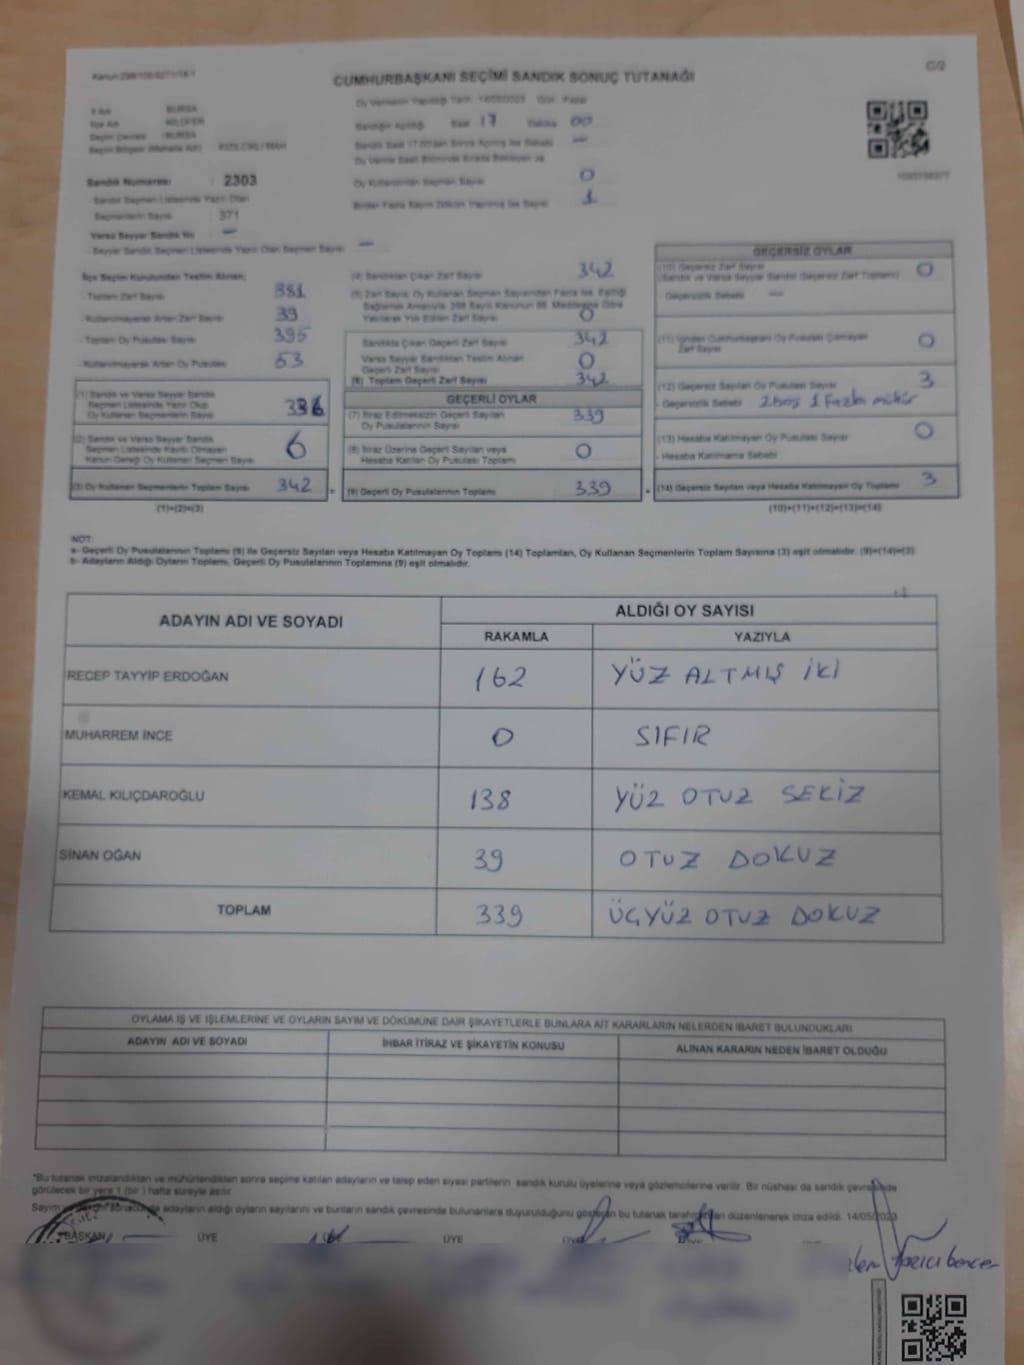 Kanun:298/105 6271/18-1
C/2
CUMHURBAŞKANI SEÇİMİ SANDIK SONUÇ TUTANAĞI
İl Adı : BURSA
İlçe Adı : NİLÜFER
Seçim Çevresi : BURSA
Oy Vermenin Yapıldığı Tarih 14/05/2023 Gün Pazar
Sandığın Açıldığı Saat 17 Dakika 00
Sandık Saat 17.00'den Sonra Açılmış İse Sebebi —
Oy Verme Saati Bitiminde Sırada Bekleyen ve
Oy Kullandırılan Seçmen Sayısı 0
Birden Fazla Sayım Döküm Yapılmış İse Sayısı 1
Sandık Numarası : 2303
- Sandık Seçmen Listesinde Yazılı Olan
Seçmenlerin Sayısı : 371
Varsa Seyyar Sandık No —
- Seyyar Sandık Seçmen Listesinde Yazılı Olan Seçmen Sayısı —
İlçe Seçim Kurulundan Teslim Alınan;
- Toplam Zarf Sayısı 381
- Kullanılmayarak Artan Zarf Sayısı 39
- Toplam Oy Pusulası Sayısı 395
- Kullanılmayarak Artan Oy Pusulası 53
(1) Sandık ve Varsa Seyyar Sandık
Seçmen Listesinde Yazılı Olup
Oy Kullanan Seçmenlerin Sayısı 336
(2) Sandık ve Varsa Seyyar Sandık
Seçmen Listesinde Kayıtlı Olmayan
Kanun Gereği Oy Kullanan Seçmen Sayısı 6
(3) Oy Kullanan Seçmenlerin Toplam Sayısı 342
(1)+(2)=(3)
(4) Sandıktan Çıkan Zarf Sayısı 342
(5) Zarf Sayısı Oy Kullanan Seçmen Sayısından Fazla İse, Eşitliği
Sağlamak Amacıyla 298 Sayılı Kanunun 98. Maddesine Göre
Yakılarak Yok Edilen Zarf Sayısı 0
Sandıkta Çıkan Geçerli Zarf Sayısı 342
Varsa Seyyar Sandıktan Teslim Alınan
Geçerli Zarf Sayısı 0
(6) Toplam Geçerli Zarf Sayısı 342
GEÇERLİ OYLAR
(7) İtiraz Edilmeksizin Geçerli Sayılan
Oy Pusulalarının Sayısı 339
(8) İtiraz Üzerine Geçerli Sayılan veya
Hesaba Katılan Oy Pusulası Toplamı 0
(9) Geçerli Oy Pusulalarının Toplamı 339
GEÇERSİZ OYLAR
(10) Geçersiz Zarf Sayısı
(Sandık ve Varsa Seyyar Sandık Geçersiz Zarf Toplamı) 0
- Geçersizlik Sebebi —
(11) İçinden Cumhurbaşkanı Oy Pusulası Çıkmayan
Zarf Sayısı 0
(12) Geçersiz Sayılan Oy Pusulası Sayısı 3
- Geçersizlik Sebebi 2 boş 1 Fazla mühür
(13) Hesaba Katılmayan Oy Pusulası Sayısı 0
- Hesaba Katılmama Sebebi
(14) Geçersiz Sayılan veya Hesaba Katılmayan Oy Toplamı 3
(10)+(11)+(12)+(13)=(14)
NOT:
a- Geçerli Oy Pusulalarının Toplamı (9) ile Geçersiz Sayılan veya Hesaba Katılmayan Oy Toplamı (14) Toplamları, Oy Kullanan Seçmenlerin Toplam Sayısına (3) eşit olmalıdır. (9)+(14)=(3)
b- Adayların Aldığı Oyların Toplamı, Geçerli Oy Pusulalarının Toplamına (9) eşit olmalıdır.
ADAYIN ADI VE SOYADI
ALDIĞI OY SAYISI
RAKAMLA YAZIYLA
RECEP TAYYİP ERDOĞAN 162 YÜZ ALTMIŞ İKİ
MUHARREM İNCE 0 SIFIR
KEMAL KILIÇDAROĞLU 138 YÜZ OTUZ SEKİZ
SİNAN OĞAN 39 OTUZ DOKUZ
TOPLAM 339 ÜÇYÜZ OTUZ DOKUZ
OYLAMA İŞ VE İŞLEMLERİNE VE OYLARIN SAYIM VE DÖKÜMÜNE DAİR ŞİKAYETLERLE BUNLARA AİT KARARLARIN NELERDEN İBARET BULUNDUKLARI
ADAYIN ADI VE SOYADI İHBAR İTİRAZ VE ŞİKAYETİN KONUSU ALINAN KARARIN NEDEN İBARET OLDUĞU
*Bu tutanak imzalandıktan ve mühürlendikten sonra seçime katılan adayların ve talep eden siyasi partilerin sandık kurulu üyelerine veya gözlemcilerine verilir. Bir nüshası da sandık çevresinde
görülecek bir yere 1 (bir ) hafta süreyle asılır
adayların aldığı oyların sayılarını ve bunların sandık çevresinde bulunanlara duyurulduğunu gösteren bu tutanak düzenlenerek imza edildi. 14/05/2023
BAŞKAN ÜYE ÜYE ÜYE ÜYE